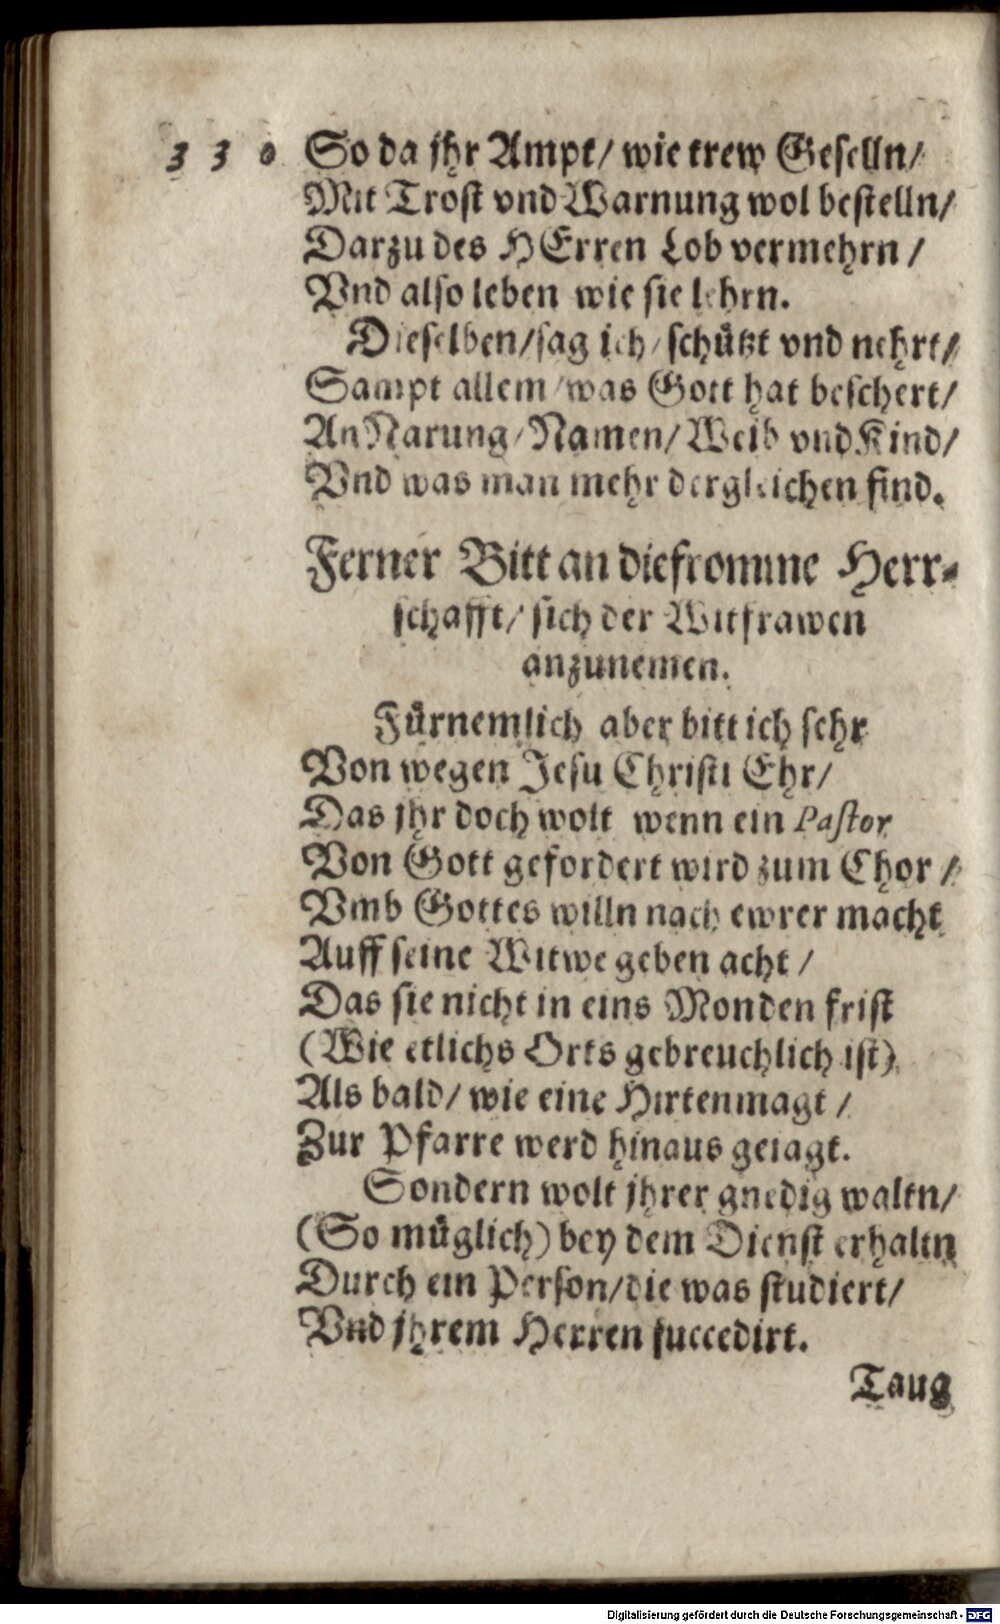 330 So da jhr Ampt/ wie trew Geselln/
Mit Trost vnd Warnung wol bestelln/
Darzu des HErren Lob vermehrn/
Vnd also leben wie sie lehrn.
Dieselben/ sag ich/ schützt vnd nehrt/
Sampt allem/ was Gott hat beschert/
An Narung/ Namen/ Weib vnd Kind/
Vnd was man mehr dergleichen find.
Ferner Bitt an die fromme Herr-
schafft/ sich der Witfrawen
anzunemen.
Fürnemlich aber bitt ich sehr
Von wegen Jesu Christi Ehr/
Das jhr doch wolt wenn ein Pastor
Von Gott gefordert wird zum Chor/
Vmb Gottes willn nach ewrer macht
Auff seine Witwe geben acht/
Das sie nicht in eins Monden frist
(Wie etlichs Orts gebreuchlich ist)
Als bald/ wie eine Hirtenmagt/
Zur Pfarre werd hinaus geiagt.
Sondern wolt jhrer gnedig waltn/
(So müglich) bey dem Dienst erhaltn
Durch ein Person/ die was studiert/
Vnd jhrem Herren succedirt.
Taug
Digitalisierung gefördert durch die Deutsche Forschungsgemeinschaft - DFG